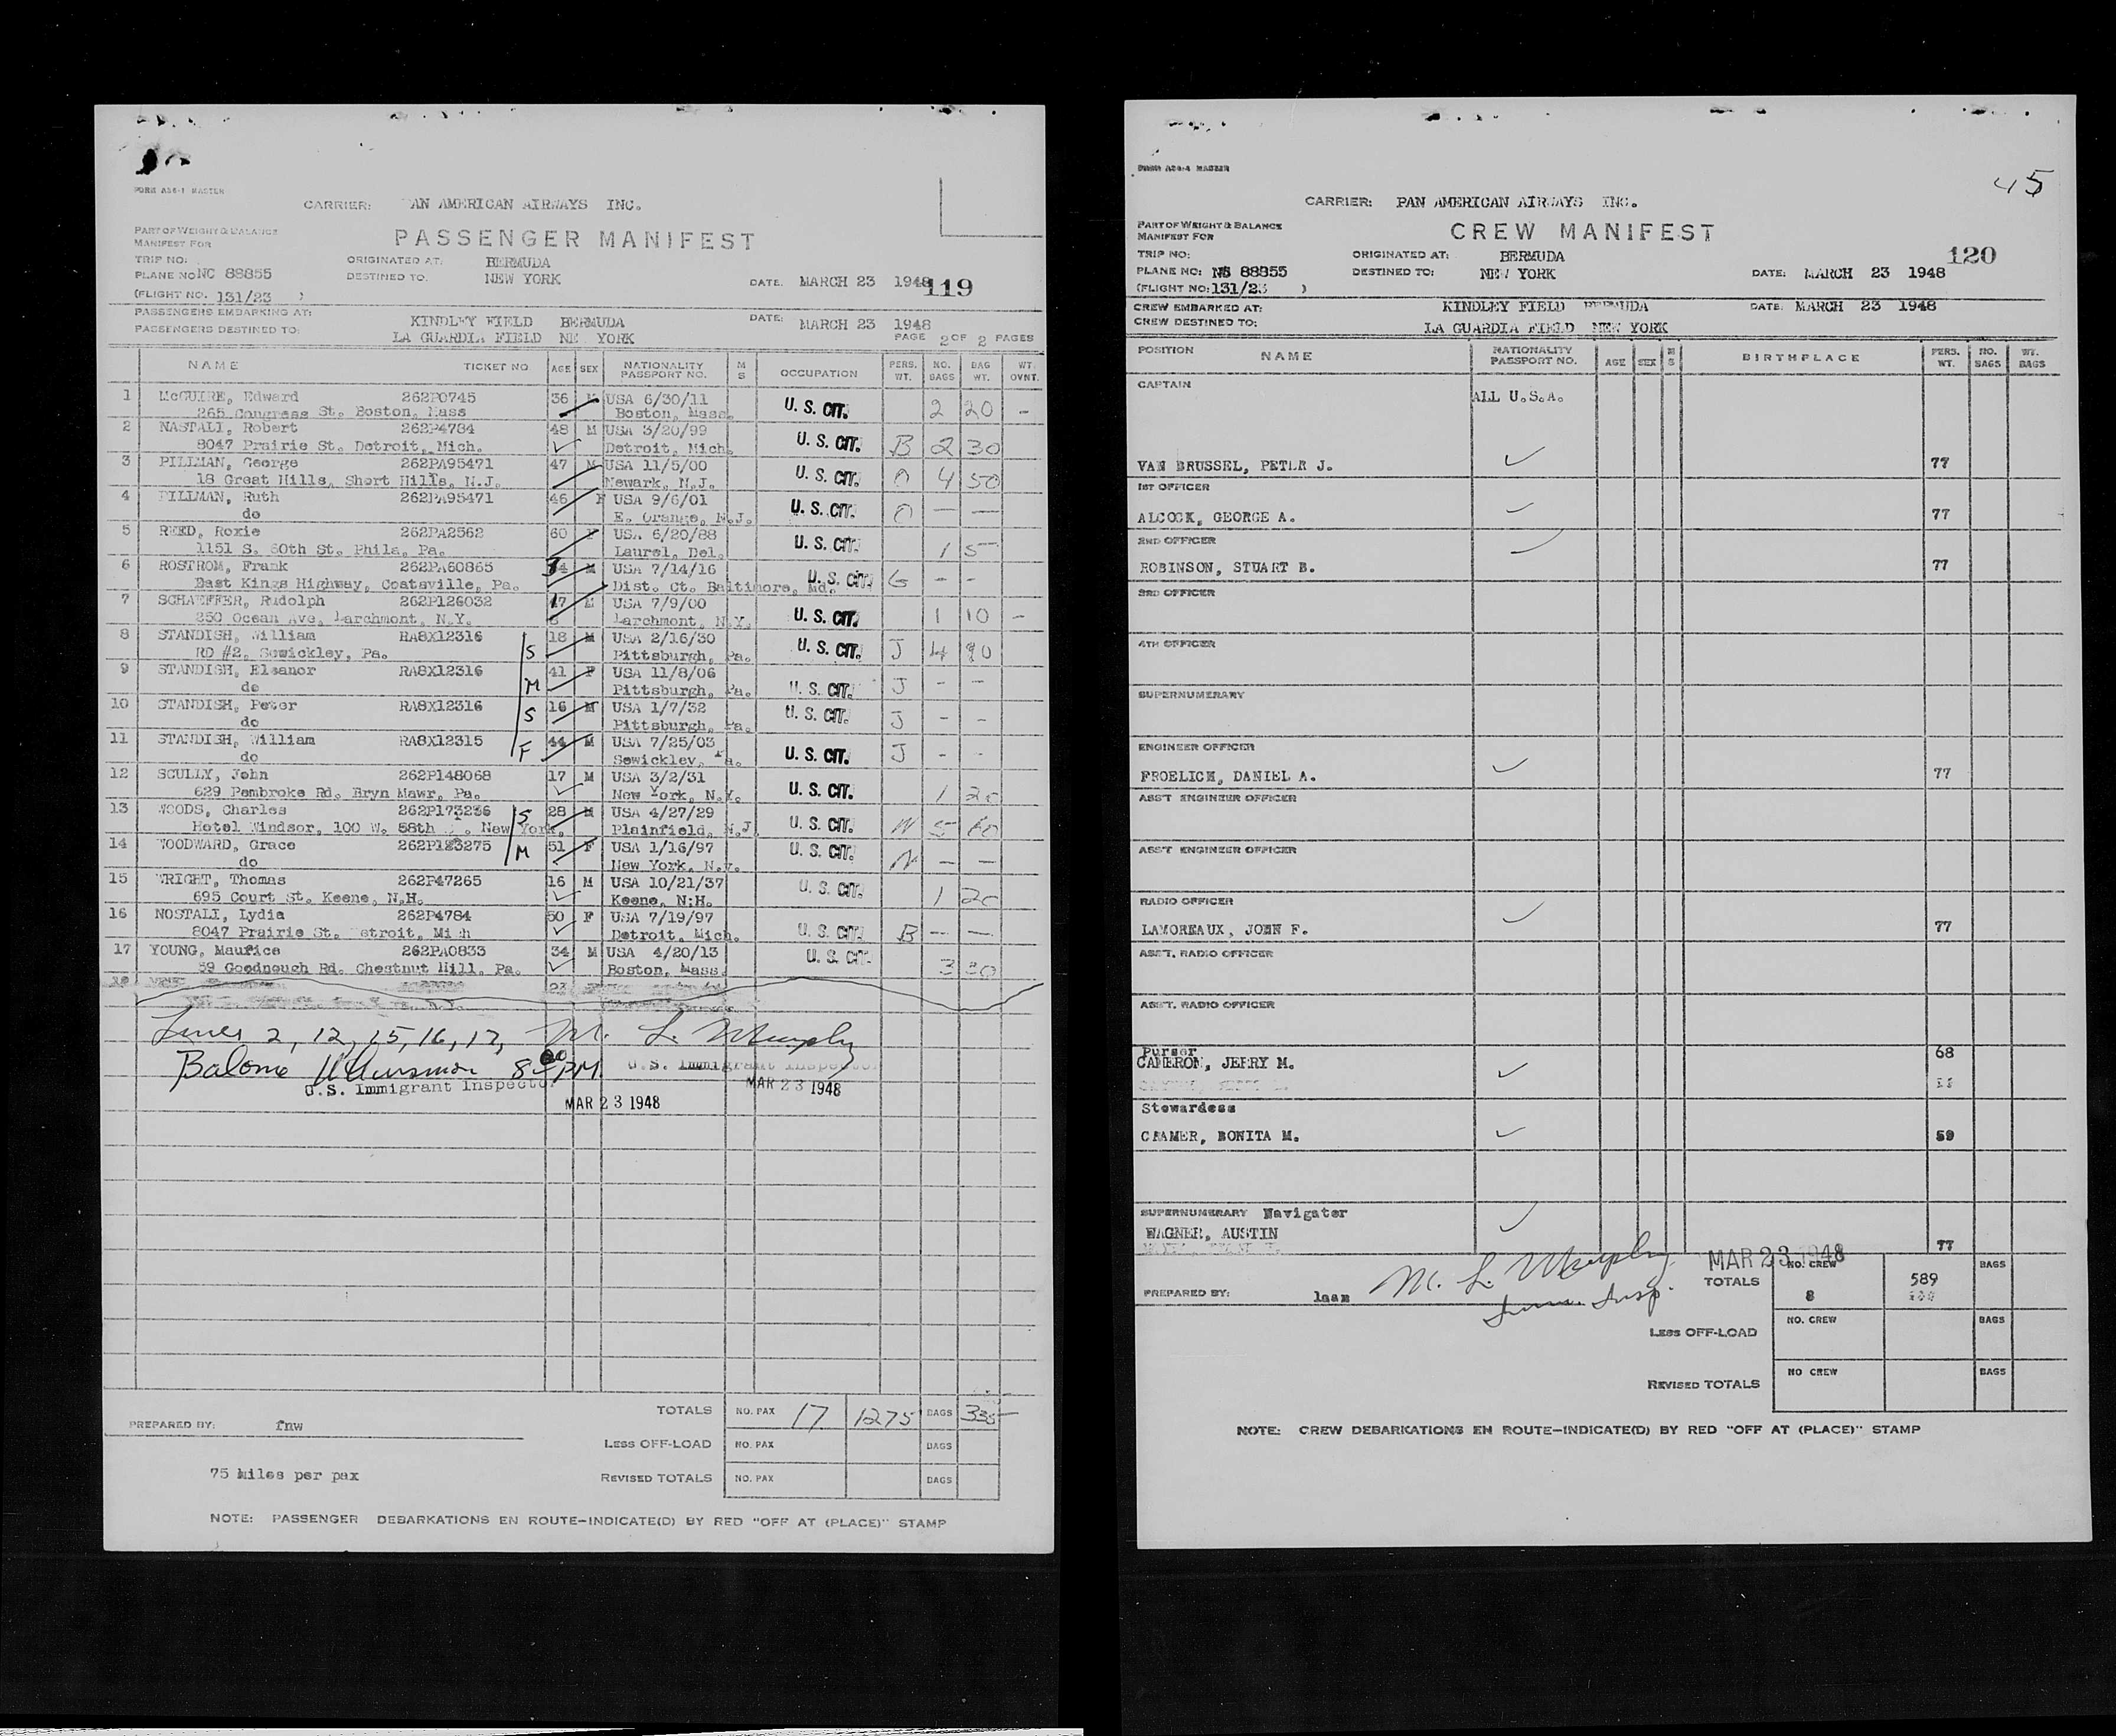 FORM AS6-1 MASTER
CARRIER: PAN AMERICAN AIRWAYS INC.
PART OF WEIGHT & BALANCE
MANIFEST FOR
PASSENGER MANIFEST
TRIP NO: ORIGINATED AT: BERMUDA
PLANE NO: NC 88855 DESTINED TO: NEW YORK DATE: MARCH 23 1948 119
(FLIGHT NO. 131/23 )
PASSENGERS EMBARKING AT: KINDLEY FIELD BERMUDA DATE: MARCH 23 1948
PASSENGERS DESTINED TO: LA GUARDIA FIELD NE YORK PAGE 2 OF 2 PAGES
NAME TICKET NO AGE SEX NATIONALITY PASSPORT NO. M S OCCUPATION PERS. WT. NO. BAGS BAG WT. WT. OVNT.
1 McGUIRE, Edward 262P0745 36 M USA 6/30/11 U. S. CIT. 2 20 -
265 Congress St. Boston, Mass Boston, Mass.
2 NASTALI, Robert 262P4784 48 M USA 3/20/99 U. S. CIT. B 2 30
8047 Prairie St. Detroit, Mich. Detroit, Mich.
3 PILLMAN, George 262PA95471 47 M USA 11/5/00 U. S. CIT. O 4 50
18 Great Hills, Short Hills, N.J. Newark, N.J.
4 PILLMAN, Ruth 262PA95471 46 F USA 9/6/01 U. S. CIT. O — —
do E. Orange, N.J.
5 REED, Roxie 262PA2562 60 F USA 6/20/88 U. S. CIT. 1 5
1151 S. 60th St. Phila, Pa. Laurel, Del.
6 ROSTROM, Frank 262PA60865 34 M USA 7/14/16 U. S. CIT. G - -
East Kings Highway, Coatsville, Pa. Dist. Ct. Baltimore, Md.
7 SCHAEFFER, Rudolph 262P126032 47 M USA 7/9/00 U. S. CIT. 1 10 -
250 Ocean Ave, Larchmont, N.Y. Larchmont, N.Y.
8 STANDISH, William RA8X12316 S 18 M USA 2/16/30 U. S. CIT. J 4 90
RD #2, Sewickley, Pa. Pittsburgh, Pa.
9 STANDISH, Eleanor RA8X12316 M 41 F USA 11/8/06 U. S. CIT. J - -
do Pittsburgh, Pa.
10 STANDISH, Peter RA8X12316 S 16 M USA 1/7/32 U. S. CIT. J - -
do Pittsburgh, Pa.
11 STANDISH, William RA8X12315 F 44 M USA 7/25/03 U. S. CIT. J - -
do Sewickley, Pa.
12 SCULLY, John 262P148068 17 M USA 3/2/31 U. S. CIT. 1 20
629 Pembroke Rd, Bryn Mawr, Pa. New York, N.Y.
13 WOODS, Charles 262P173236 S 28 M USA 4/27/29 U. S. CIT. W 5 60
Hotel Windsor, 100 W. 58th New York, Plainfield, N.J.
14 WOODWARD, Grace 262P123275 M 51 F USA 1/16/97 U. S. CIT. W — —
do New York, N.Y.
15 WRIGHT, Thomas 262P47265 16 M USA 10/21/37 U. S. CIT. 1 20
695 Court St. Keene, N.H. Keene, N.H.
16 NOSTALI, Lydia 262P4784 50 F USA 7/19/97 U. S. CIT. B — —
8047 Prairie St. etroit, Mich Detroit, Mich.
17 YOUNG, Maurice 262PA0833 34 M USA 4/20/13 U. S. CIT. 3 30
59 Goodnough Rd. Chestnut Hill, Pa. Boston, Mass.
18 23
Lines 2, 12, 15, 16, 17, M. L. Murphy
8 00 PM U.S. Immigrant Inspector
U.S. Immigrant Inspector MAR 23 1948
MAR 23 1948
TOTALS NO. PAX 17 1275 BAGS 335
PREPARED BY: fnw
LESS OFF-LOAD NO. PAX BAGS
75 Miles per pax REVISED TOTALS NO. PAX BAGS
NOTE: PASSENGER DEBARKATIONS EN ROUTE—INDICATE(D) BY RED "OFF AT (PLACE)" STAMP
FORM AS6-4 MASTER
45
CARRIER: PAN AMERICAN AIRWAYS INC.
PART OF WEIGHT & BALANCE
MANIFEST FOR
CREW MANIFEST
TRIP NO: ORIGINATED AT: BERMUDA 120
PLANE NO: NC 88855 DESTINED TO: NEW YORK DATE: MARCH 23 1948
(FLIGHT NO: 131/23 )
CREW EMBARKED AT: KINDLEY FIELD BERMUDA DATE: MARCH 23 1948
CREW DESTINED TO: LA GUARDIA FIELD NEW YORK
POSITION NAME NATIONALITY PASSPORT NO. AGE SEX M S BIRTHPLACE PERS. WT. NO. BAGS WT. BAGS
CAPTAIN ALL U.S.A.
VAN BRUSSEL, PETER J. 77
1ST OFFICER
ALCOCK, GEORGE A. 77
2ND OFFICER
ROBINSON, STUART B. 77
3RD OFFICER
4TH OFFICER
SUPERNUMERARY
ENGINEER OFFICER
FROELICH, DANIEL A. 77
ASS'T ENGINEER OFFICER
ASS'T ENGINEER OFFICER
RADIO OFFICER
LAMOREAUX, JOHN F. 77
ASST. RADIO OFFICER
ASST. RADIO OFFICER
Purser 68
CAMERON, JERRY M.
Stewardess
CRAMER, BONITA M. 59
SUPERNUMERARY Navigator
WAGNER, AUSTIN 77
MAR 23 1948
M. L. Murphy
Imm. Insp.
TOTALS NO. CREW 8 589 BAGS
PREPARED BY: laam
LESS OFF-LOAD NO. CREW BAGS
REVISED TOTALS NO CREW BAGS
NOTE: CREW DEBARKATIONS EN ROUTE—INDICATE(D) BY RED "OFF AT (PLACE)" STAMP